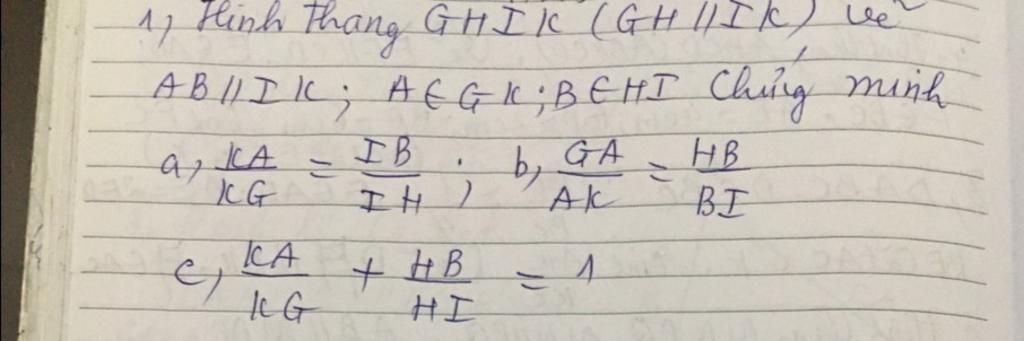 1, Hình thang GHIK (GH // IK) vẽ
AB // IK; A∈GK; B∈HI Chứng minh
a, KA/KG = IB/IH ; b, GA/AK = HB/BI
c, KA/KG + HB/HI = 1